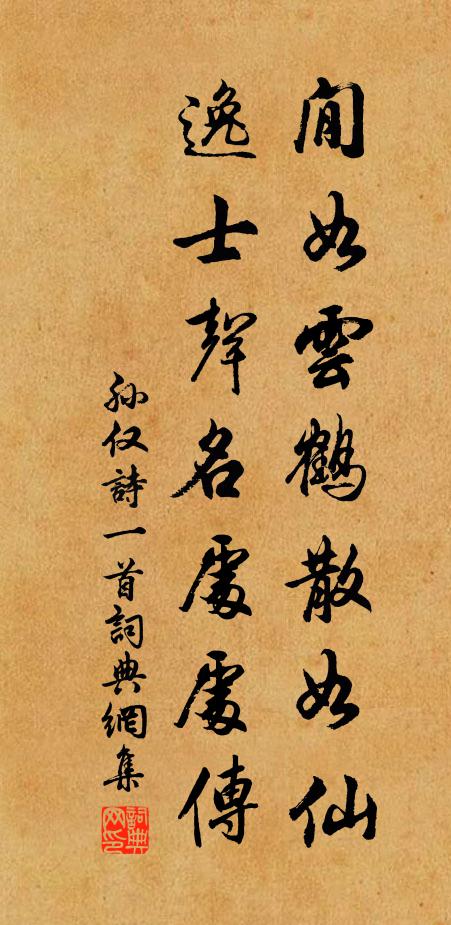 閒如雲鶴散如仙
逸士聲名處處傳
孙仅詩一首詞典網集
詞典网印